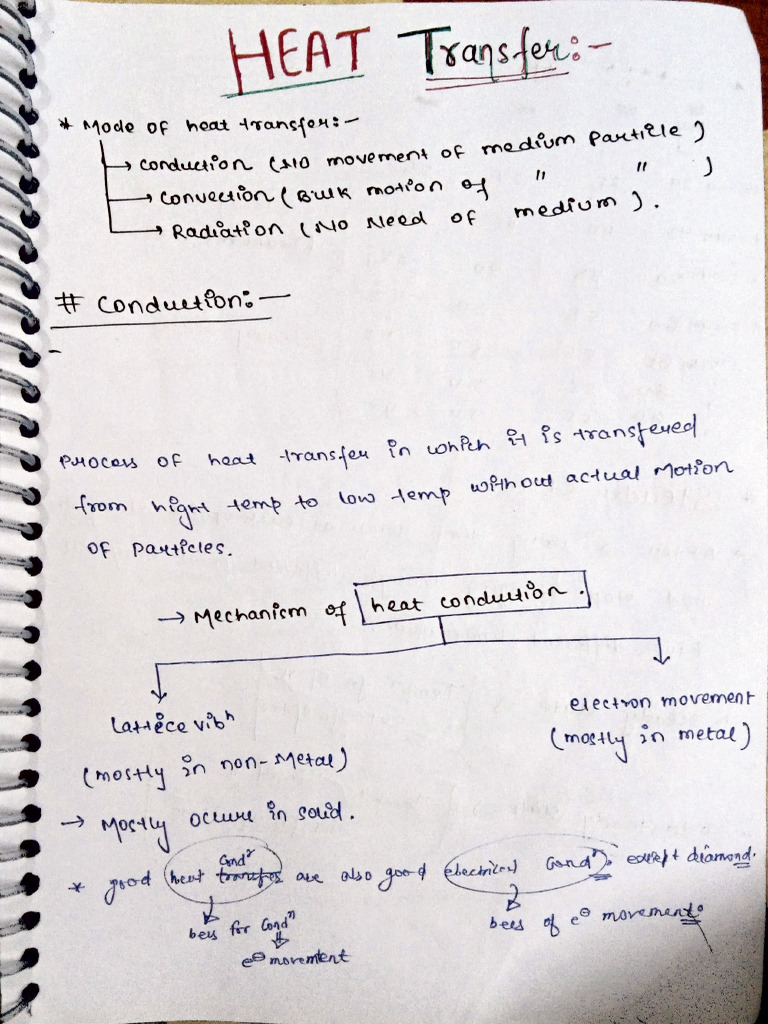 HEAT Transfer:-
* Mode of heat transfer:-
→ conduction (NO movement of medium particle)
→ convection (Bulk motion of " " )
→ Radiation (NO Need of medium).
# Conduction:-
-
Process of heat transfer in which it is transfered
from hight temp to low temp without actual Motion
of particles.
→ Mechanism of heat conduction.
Lattece vibⁿ
(mostly in non-Metal)
electron movement
(mostly in metal)
→ Mostly occure in solid.
* good heat condʳ are also good electrical condʳ). except diamond.
bcs for condⁿ
e⊖ movement
bcs of e⊖ movement: